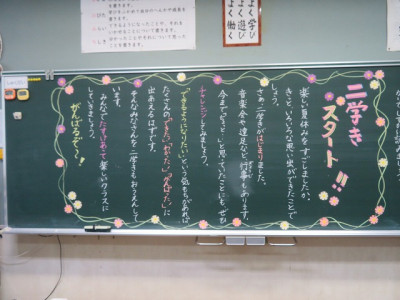 よく学び
よく遊び
よく働く
二学き
スタート!!
楽しい夏休みをすごしましたか。
きっと、いろいろな思い出ができたことで
しょう。
さあ、二学きがはじまりました。
音楽会や遠足など行事もあります。
今まで「むりっ」と思っていたことにも、ぜひ
チャレンジしてみましょう。
「できるようになりたい」という気もちがあれば
たくさんの「できた」「わかった」「がんばった」に
出あえるはずです。
そんなみなさんを二学きもおうえんして
います。
みんなでたすけあって楽しいクラスに
していきましょう。
がんばるぞー!